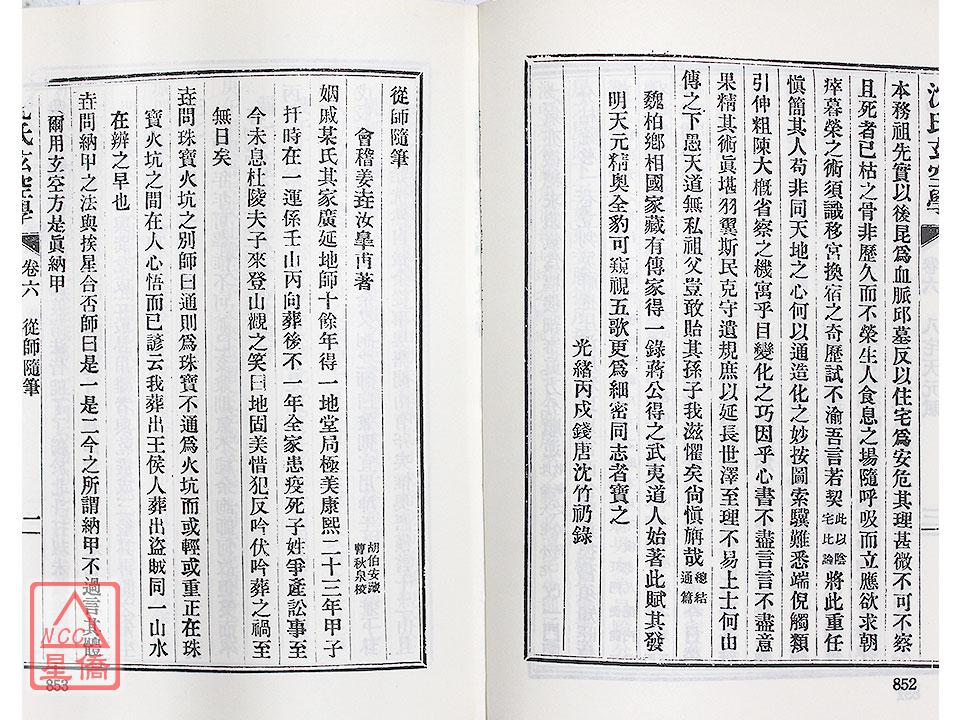 沈氏玄空學
本務祖先實以後昆爲血脈邱墓反以住宅爲安危其理甚微不可不察
且死者已枯之骨非歷久而不榮生人食息之場隨呼吸而立應欲求朝
瘁暮榮之術須識移宮換宿之奇歷試不渝吾言若契此以陰宅比論將此重任
愼簡其人苟非同天地之心何以通造化之妙按圖索驥難悉端倪觸類
引伸粗陳大槪省察之機寓乎目變化之巧因乎心書不盡言言不盡意
果精其術眞堪羽翼斯民克守遺規庶以延長世澤至理不易上士何由
傳之下愚天道無私祖父豈敢貽其孫子我滋懼矣尙愼旃哉總結通篇
魏柏鄉相國家藏有傳家得一錄蔣公得之武夷道人始著此賦其發
明天元精奧全豹可窺視五歌更爲細密同志者寶之
光緒丙戌錢唐沈竹礽錄
852
從師隨筆
會稽姜垚汝臯甫著
胡伯安藏
曹秋泉校
姻戚某氏其家廣延地師十餘年得一地堂局極美康熙二十三年甲子
扦時在一運係壬山丙向葬後不一年全家患疫死子姓爭產訟事至
今未息杜陵夫子來登山觀之笑曰地固美惜犯反吟伏吟葬之禍至
無日矣
垚問珠寶火坑之別師曰通則爲珠寶不通爲火坑而或輕或重正在珠
寶火坑之間在人心悟而已諺云我葬出王侯人葬出盜賊同一山水
在辨之早也
垚問納甲之法與挨星合否師曰是一是二今之所謂納甲不過言其體
爾用玄空方是眞納甲
沈氏玄空學 卷六 從師隨筆 一
853
NCC
星僑